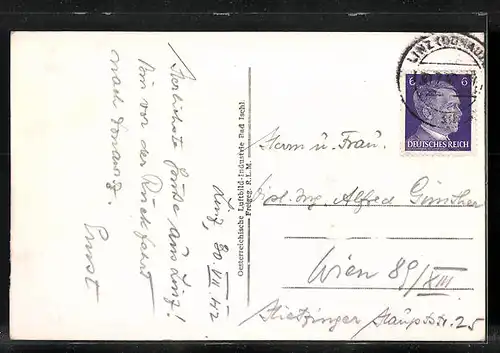 Linz, 30 VII 42
Herzlichste Grüße aus Linz!
bin vor der Rückfahrt
nach Donawitz.
Ernst
Oesterreichische Luftbild-Industrie Bad Ischl.
Freigeg. R.L.M.
LINZ (DONAU)
6 6
DEUTSCHES REICH
Herrn u. Frau.
Dipl. Ing. Alfred Günther
Wien 89/XIII
Hietzinger Hauptstr. 25